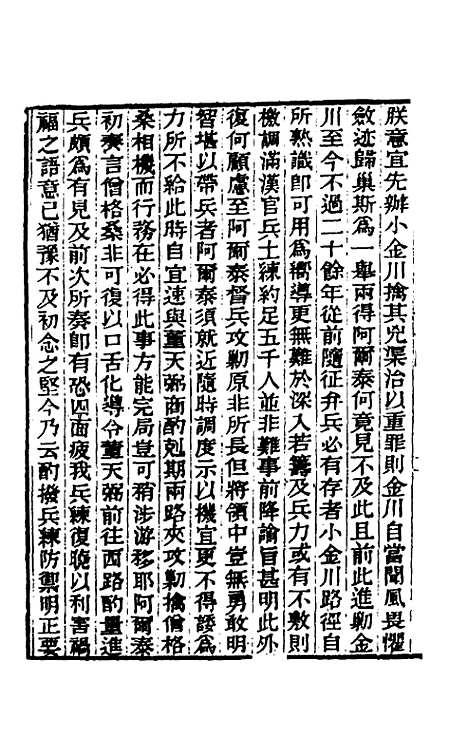 朕意宜先辦小金川擒其兇渠治以重罪則金川自當聞風畏懼
斂迹歸巢斯爲一舉兩得阿爾泰何竟見不及此且前此進勦金
川至今不過二十餘年從前隨征弁兵必有存者小金川路徑自
所熟識即可用爲嚮導更無難於深入若籌及兵力或有不敷則
檄調滿漢官兵土練約足五千人並非難事前降諭旨甚明此外
復何顧慮至阿爾泰督兵攻勦原非所長但將領中豈無勇敢明
智堪以帶兵者阿爾泰須就近隨時調度示以機宜更不得諉爲
力所不給此時自宜速與董天弼商酌剋期兩路夾攻勦擒僧格
桑相機而行務在必得此事方能完局豈可稍涉游移耶阿爾泰
初奏言僧格桑非可復以口舌化導令董天弼前往西路酌量進
兵頗爲有見及前次所奏即有恐四面疲我兵練復曉以利害禍
福之語意已猶豫不及初念之堅今乃云酌撥兵練防禦明正要